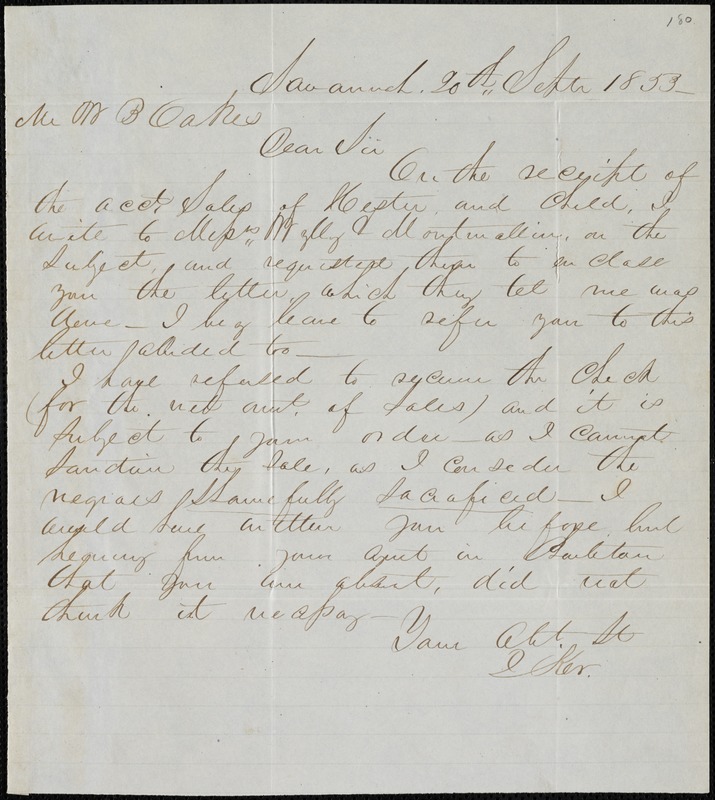 180
Savannah, 20th Septr 1853
Mr W B Oakes
Dear Sir
On the receipt of
the acct Sales of Hester and Child, I
write to Messrs Wylly & Montmollin, on the
Subject, and requested them to enclose
you the letter, which they tel me was
done — I beg leave to refer you to this
letter aluded to —
I have refused to receive the Check
(for the net amt. of Sales) and it is
subject to your order — as I cannot
Sanction the sale, as I consider the
negroes Shamefully Sacraficed — I
would have written you before but
hearing from your agent in Charleston
that you were absent, did not
think it necessary —
Your Obt. St
J Ker.